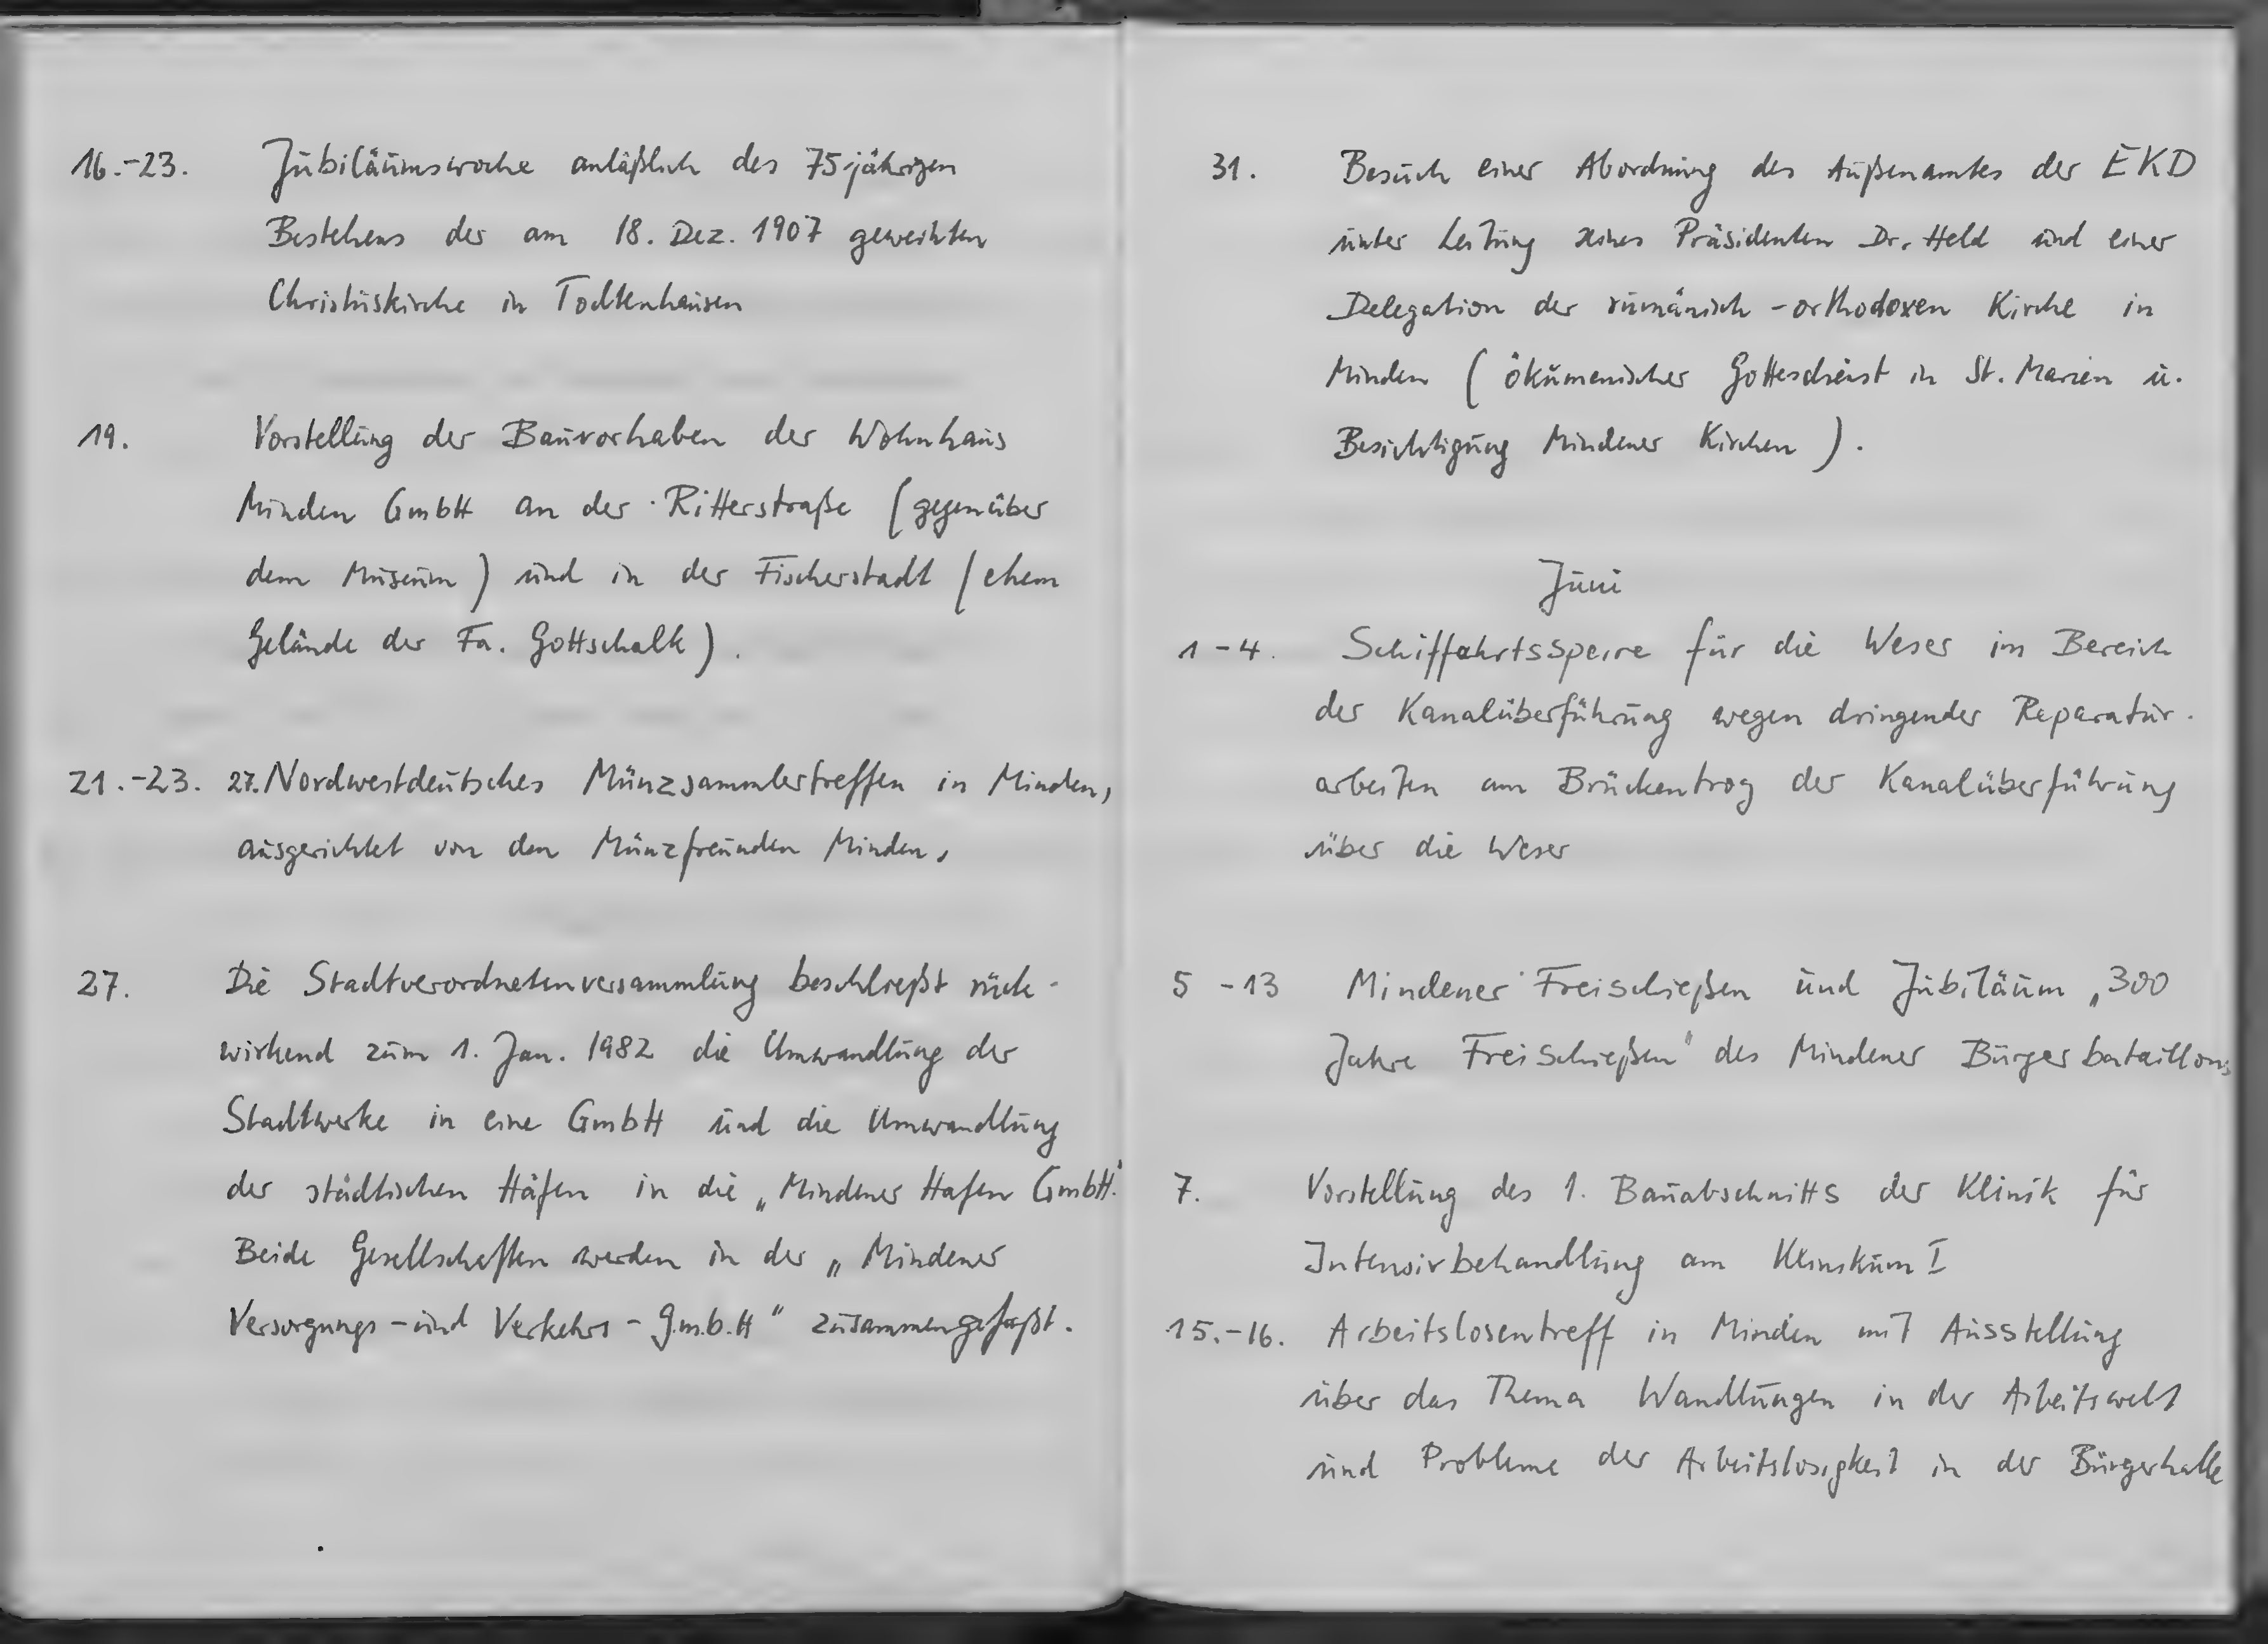 16.-23. Jubiläumswoche anläßlich des 75jährigen
Bestehens der am 18. Dez. 1907 geweihten
Christuskirche in Todtenhausen
19. Vorstellung der Bauvorhaben der Wohnhaus
Minden GmbH an der Ritterstraße (gegenüber
dem Museum) und in der Fischerstadt (ehem
Gelände der Fa. Gottschalk).
21.-23. 27. Nordwestdeutsches Münzsammlertreffen in Minden,
ausgerichtet von den Münzfreunden Minden.
27. Die Stadtverordnetenversammlung beschließt rück-
wirkend zum 1. Jan. 1982 die Umwandlung der
Stadtwerke in eine GmbH und die Umwandlung
der städtischen Häfen in die „Mindener Hafen GmbH".
Beide Gesellschaften werden in der „Mindener
Versorgungs- und Verkehrs-G.m.b.H" zusammengefaßt.
31. Besuch einer Abordnung des Außenamtes der EKD
unter Leitung seines Präsidenten Dr. Held und einer
Delegation der rumänisch-orthodoxen Kirche in
Minden (ökumenischer Gottesdienst in St. Marien u.
Besichtigung Mindener Kirchen).
Juni
1-4. Schiffahrtssperre für die Weser im Bereich
der Kanalüberführung wegen dringender Reparatur-
arbeiten am Brückentrog der Kanalüberführung
über die Weser
5-13 Mindener Freischießen und Jubiläum „300
Jahre Freischießen" des Mindener Bürgerbataillons
7. Vorstellung des 1. Bauabschnitts der Klinik für
Intensivbehandlung am Klinikum I
15.-16. Arbeitslosentreff in Minden mit Ausstellung
über das Thema Wandlungen in der Arbeitswelt
und Probleme der Arbeitslosigkeit in der Bürgerhalle